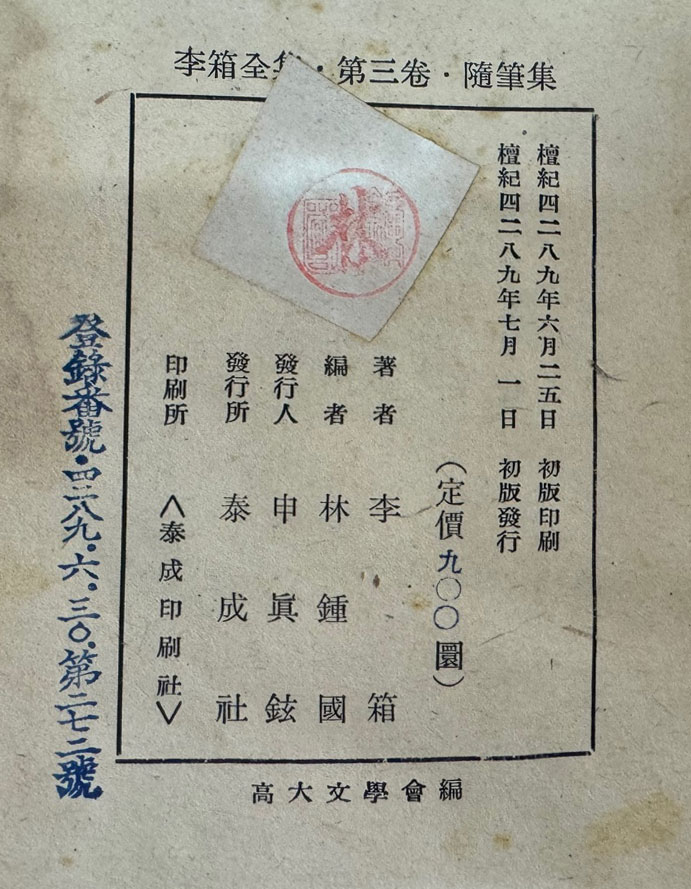 李箱全集・第三卷・隨筆集
檀紀四二八九年六月二五日 初版印刷
檀紀四二八九年七月 一日 初版發行
(定價九〇〇圜)
著者 李箱
編者 林鍾國
發行人 申眞鉉
發行所 泰成社
印刷所 〈泰成印刷社〉
高大文學會編
登錄番號・四二八九・六・三〇・第二七二號
林